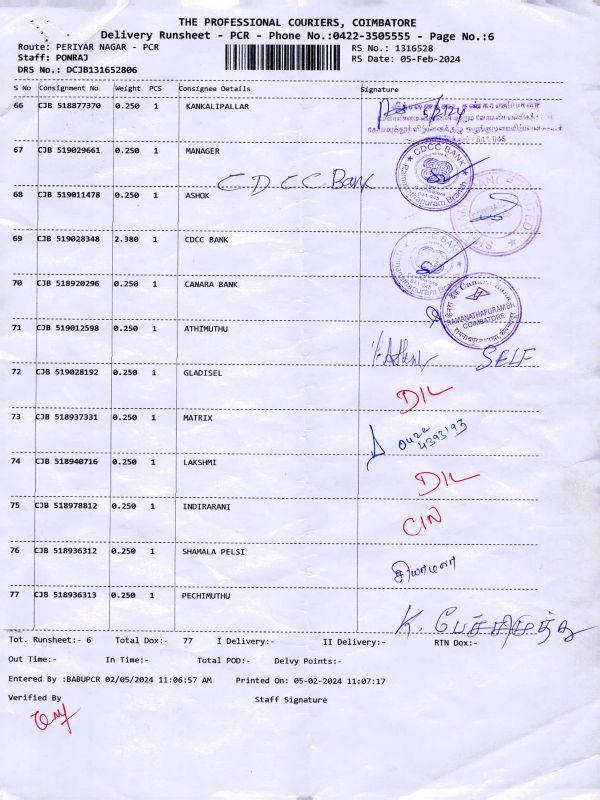 THE PROFESSIONAL COURIERS, COIMBATORE
Delivery Runsheet - PCR - Phone No.:0422-3505555 - Page No.:6
Route: PERIYAR NAGAR - PCR RS No.: 1316528
Staff: PONRAJ RS Date: 05-Feb-2024
DRS No.: DCJB131652806
S No Consignment No Weight PCS Consignee Details Signature
66 CJB 518877370 0.250 1 KANKALIPALLAR
67 CJB 519029661 0.250 1 MANAGER
CDCC BANK
Ramanathapuram Branch
C.D.C.C. Bank
68 CJB 519011478 0.250 1 ASHOK
69 CJB 519028348 2.380 1 CDCC BANK
CDCC BANK
Ramanathapuram Branch
70 CJB 518920296 0.250 1 CANARA BANK
Canara Bank
RAMANATHAPURAM BR.
COIMBATORE
71 CJB 519012598 0.250 1 ATHIMUTHU
SELF
72 CJB 519028192 0.250 1 GLADISEL
D/L
73 CJB 518937331 0.250 1 MATRIX
0422
4393193
74 CJB 518940716 0.250 1 LAKSHMI
D/L
75 CJB 518978812 0.250 1 INDIRARANI
C/N
76 CJB 518936312 0.250 1 SHAMALA PELSI
சியாமளா
77 CJB 518936313 0.250 1 PECHIMUTHU
K. பேச்சிமுத்து
Tot. Runsheet:- 6 Total Dox:- 77 I Delivery:- II Delivery:- RTN Dox:-
Out Time:- In Time:- Total POD:- Delvy Points:-
Entered By :BABUPCR 02/05/2024 11:06:57 AM Printed On: 05-02-2024 11:07:17
Verified By Staff Signature